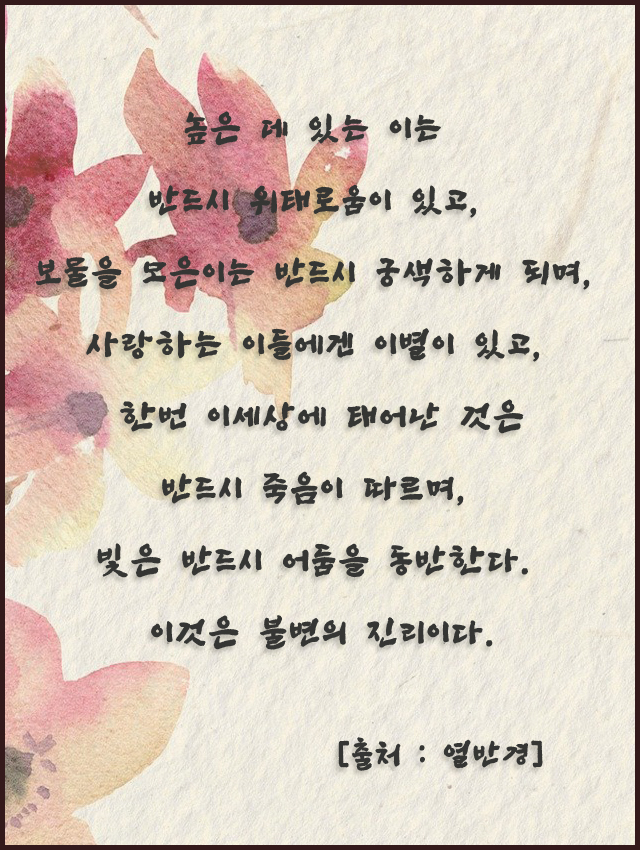 높은 데 있는 이는
반드시 위태로움이 있고,
보물을 모은이는 반드시 궁색하게 되며,
사랑하는 이들에겐 이별이 있고,
한번 이세상에 태어난 것은
반드시 죽음이 따르며,
빛은 반드시 어둠을 동반한다.
이것은 불변의 진리이다.
[출처 : 열반경]